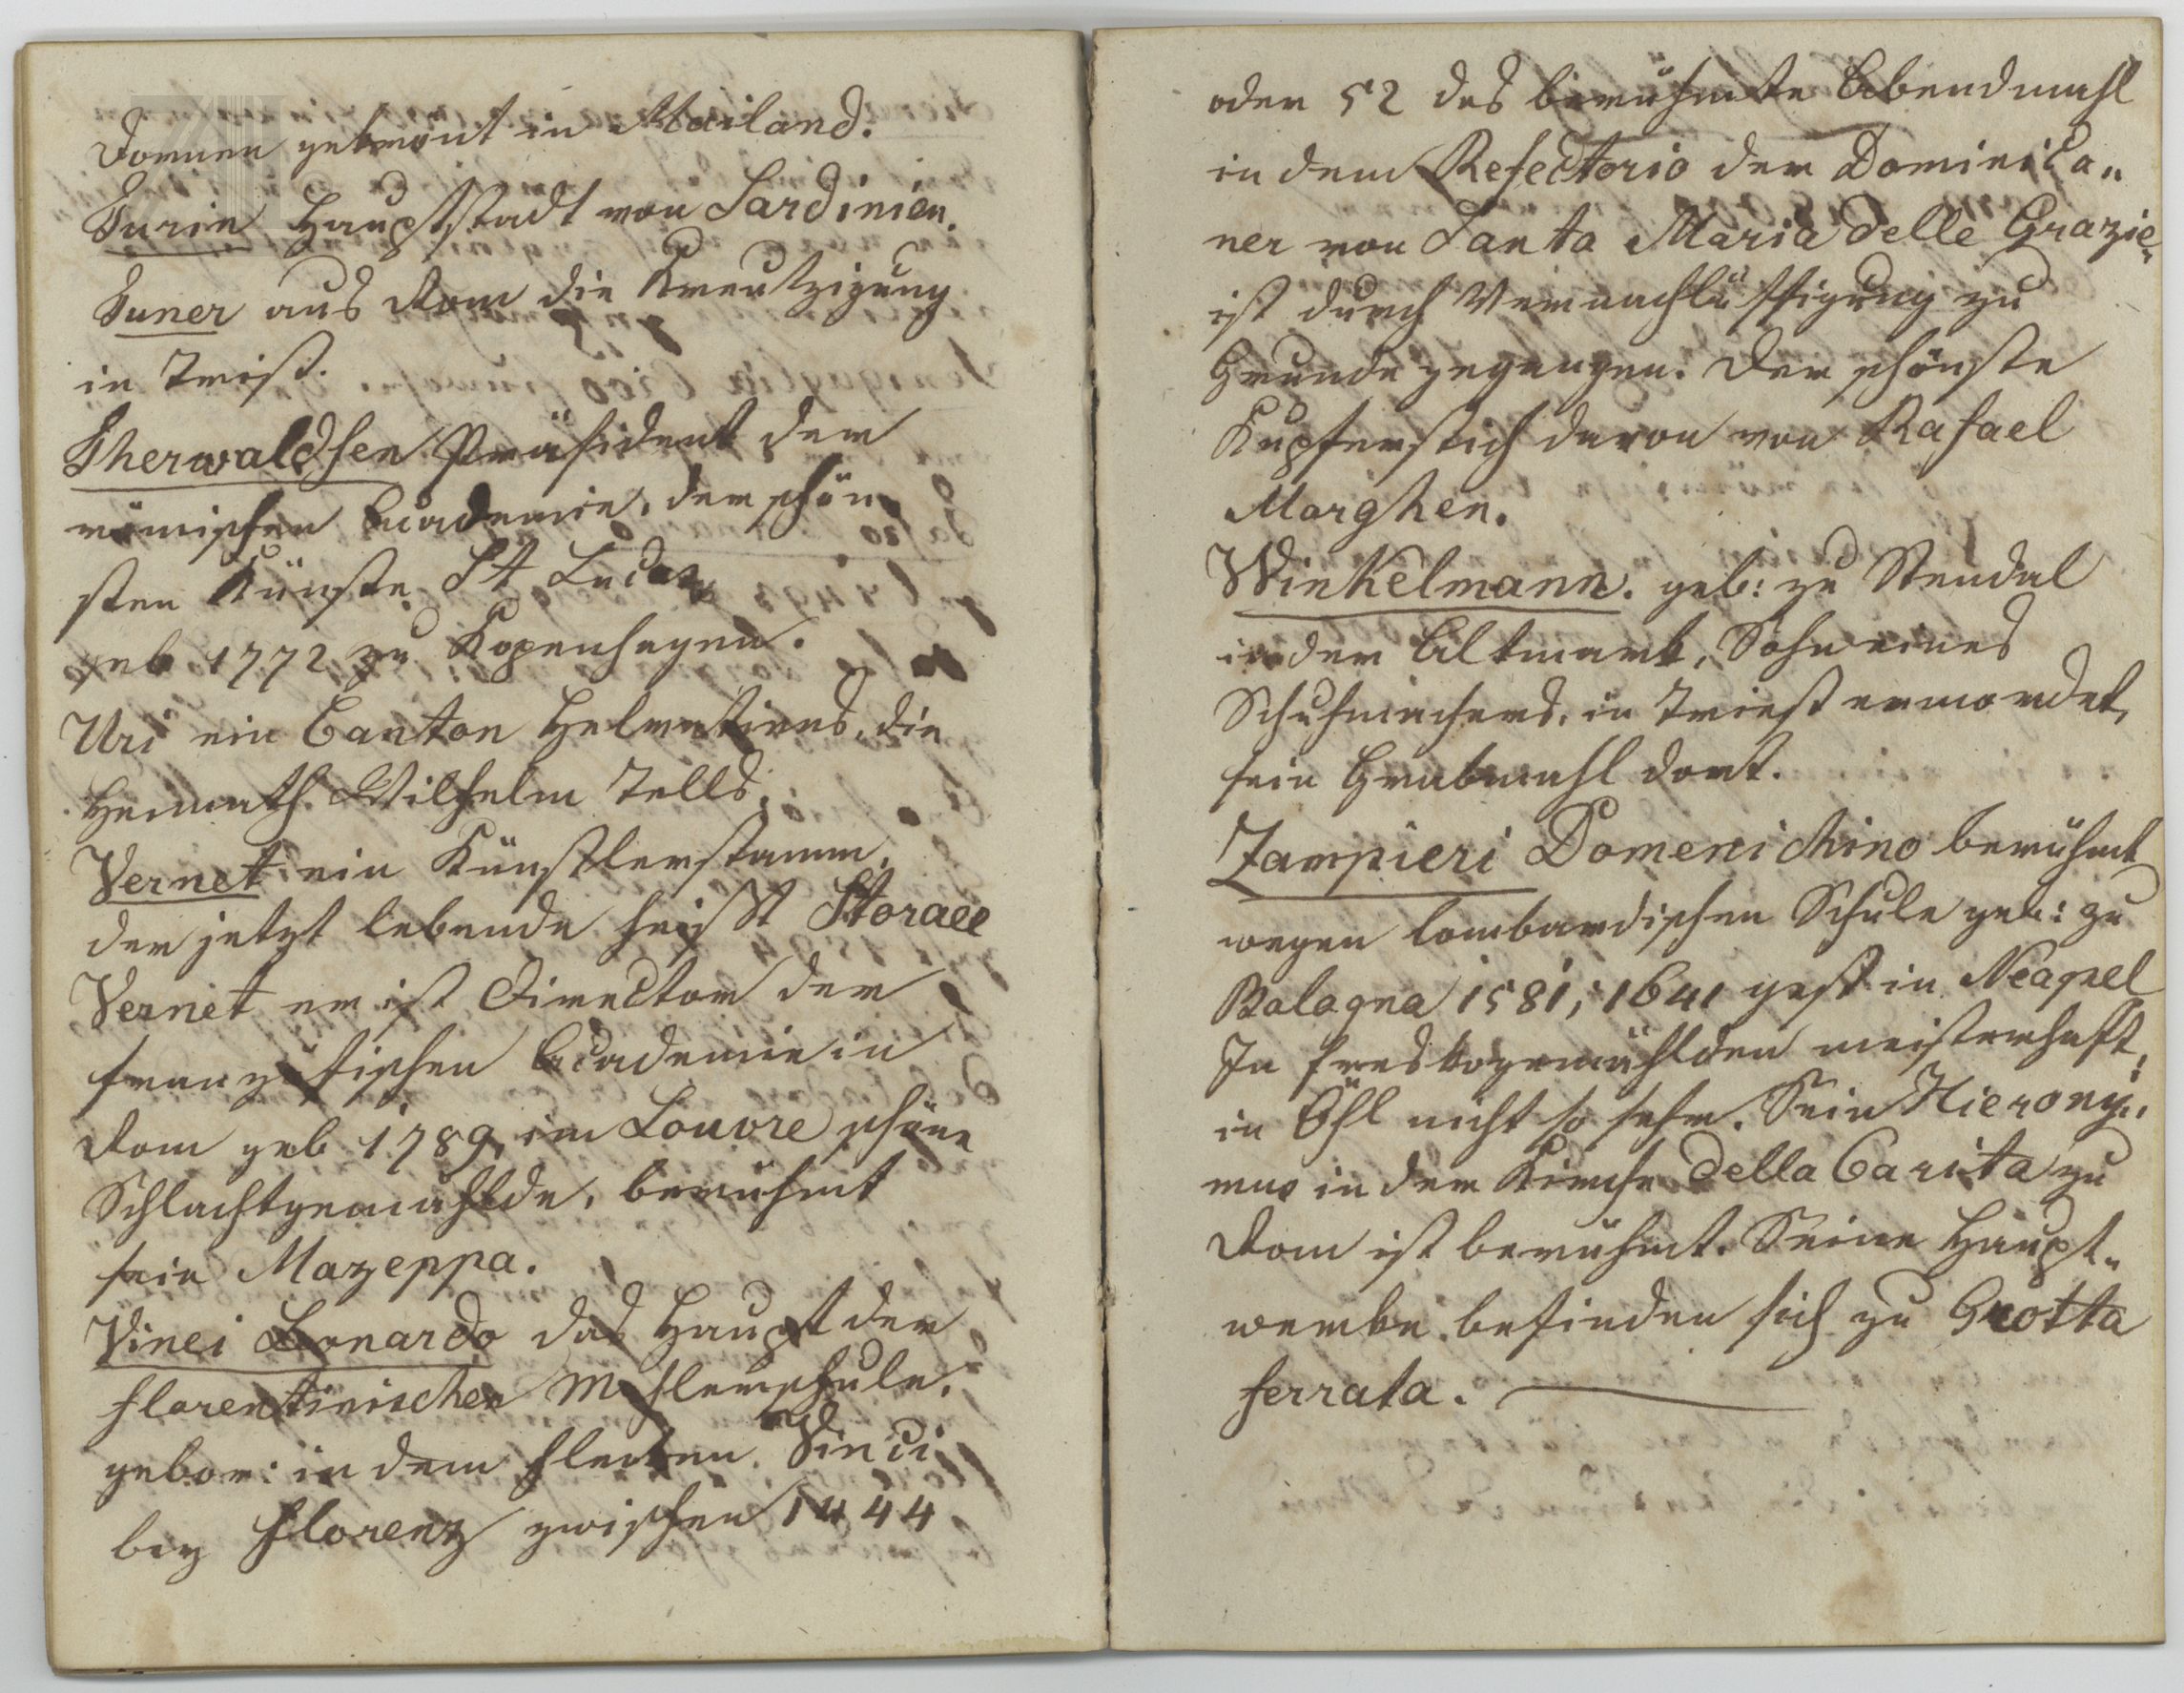 Dornen gekrönt in Mailand.
Turin Hauptstadt von Sardinien.
Tuner aus Rom die Kreutzigung
in Triest.
Therwaldsen Präsident der
römischen Academie, der schön„
sten Künste St Lucas,
geb 1772 zu Kopenhagen.
Uri ein Canton Helvetiens, die
Heimath Wilhelm Tells.
Vernet ein Künstlerstamm,
der jetzt lebende heißt Horace
Vernet er ist Director der
französischen Academie in
Rom geb 1789, im Louvre schöne
Schlachtgemählde, berühmt
sein Mazeppa.
Vinci Leonardo das Haupt der
florentinischen Mahlerschule.
gebor: in dem Flecken Vinci
bey Florenz zwischen 1444
oder 52 das berühmte Abendmahl
in dem Refectorio der Dominica„
ner von Santa Maria delle Grazie„
ist durch Vernachläßigung zu
Grunde gegangen. Der schönste
Kupferstich davon von Rafael
Morghen.
Winkelmann. geb: zu Stendal
in der Altmark, Sohn eines
Schuhmachers, in Triest ermordet,
sein Grabmahl dort.
Zampieri Domenichino berühmt
wegen lombardischen Schule geb: zu
Bologna 1581, 1641 gest in Neapel
In Freskogemählden meisterhaft,
in Öhl nicht so sehr. Sein Hierony„
mus in der Kirche della Carita zu
Rom ist berühmt. Seine Haupt„
werke befinden sich zu Grotta
ferrata.